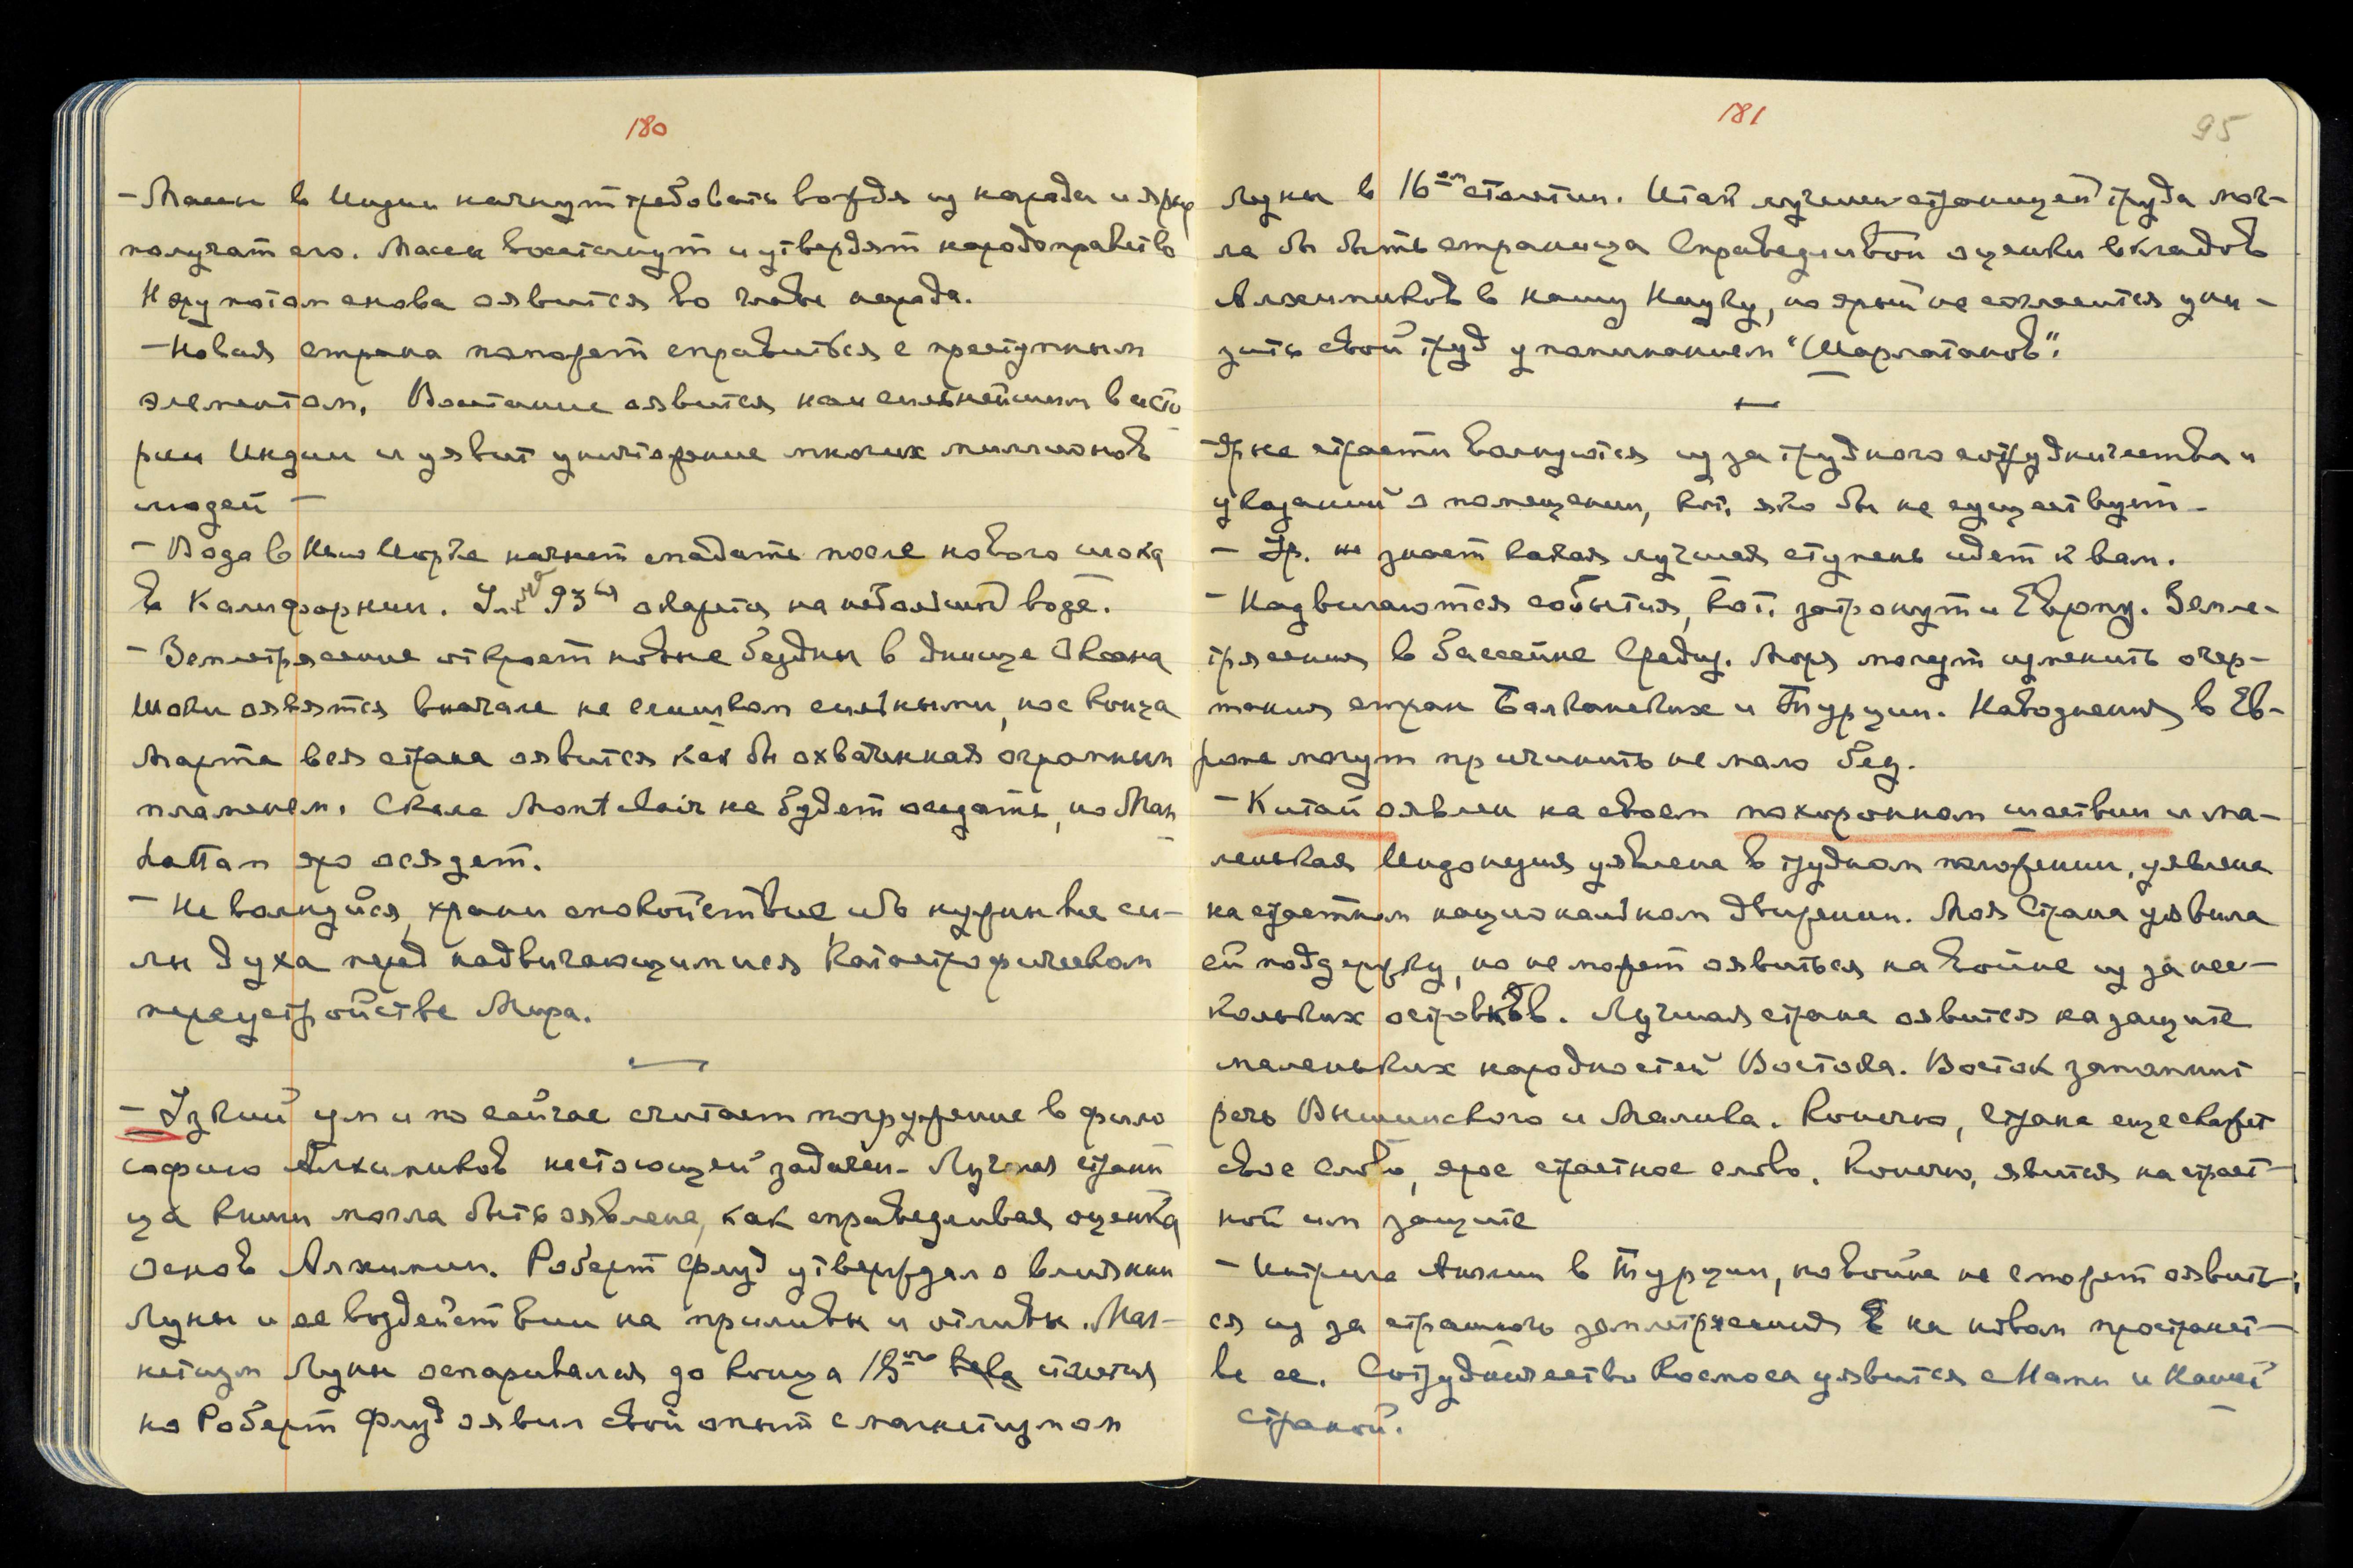 180
- Массы в Индии начнут требовать вождя из народа и ярко
получат его. Массы восстанут и утвердят народоправство
Неру потом снова оявится во главе народа.
- Новая страна поможет справиться с преступным
элементом. Восстание оявится наисильнейшим в исто
рии Индии и уявит уничтожение многих миллионов
людей -
- Вода в Нью Иорке начнет спадать после нового шока
в Калифорнии. 93 окажется на небольшой воде.
- Землетрясение откроет новые бездны в днище Океана
Шоки оявятся вначале не слишком сильными, но с конца
Марта вся страна оявится как бы охваченная огромным
пламенем. Скала Montclair не будет оседать, но Man
hattan яро осядет.
- Не волнуйся, храни спокойствие ибо нужны все си-
лы духа перед надвигающимися Катастрофическом
переустройстве Мира.
- Узкий ум и по сейчас считает погружение в фило
софию Алхимиков настоящей задачей - Лучшая страни
ца книги могла быть оявлена, как справедливая оценка
основ Алхимии. Роберт Флуд утверждал о влиянии
Луны и ее воздействии на приливы и отливы. Маг-
нетизм Луны оспаривался до конца 18го века столетия
но Роберт Флуд оявил свой опыт с магнетизмом
181
95
Луны в 16ом столетии. Итак лучшей страницей труда мог-
ла бы быть страница Справедливой оценки вкладов
Алхимиков в нашу Науку, но ярый не согласится уни-
зить свой труд упоминанием "Шарлатанов".
- Ярые страсти волнуются из за трудного сотрудничества и
указаний о помещении, кот. яко бы не существует -
- Ур. не знает какая лучшая ступень идет к вам.
- Надвигаются события, кот. затронут и Европу. Земле-
трясения в бассейне Средиз. Моря могут изменить очер-
тания стран Балканских и Турции. Наводнения в Ев-
ропе могут причинить не мало бед.
- Китай оявлен на своем похоронном шествии и ма-
ленькая Индонезия уявлена в трудном положении, уявлена
на страстном национальном движении. Моя Страна уявила
ей поддержку, но не может оявиться на войне из за нес-
кольких островков. Лучшая страна оявится на защите
маленьких народностей Востока. Восток запомнит
речь Вышинского и Малика. Конечно, Страна еще скажет
свое слово, ярое страстное слово. Конечно, явится на страст-
ной им защите
- Интрига Англии в Турции, но война не сможет оявить-
ся из за страшного землетрясения в на новом пространст-
ве ее. Сотрудничество Космоса уявится с Нами и Нашей
страной.